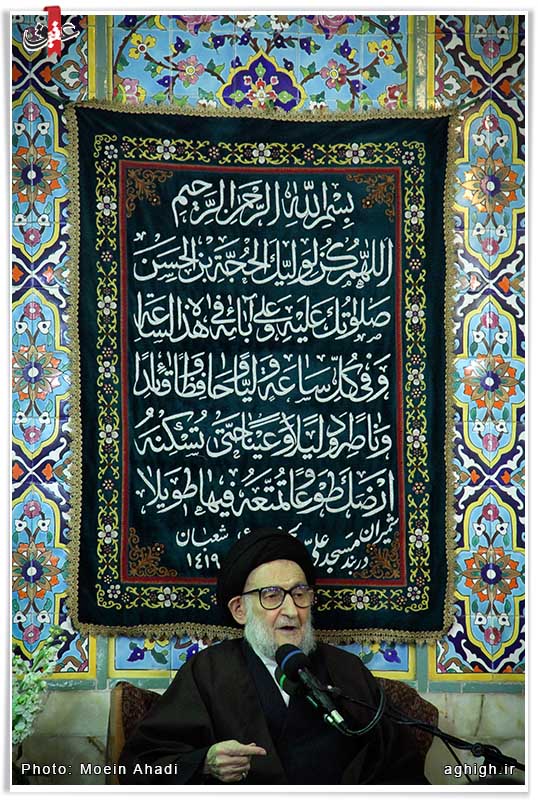 عقیق
بسم الله الرحمن الرحیم
اللهم کن لولیک الحجة بن الحسن
صلواتک علیه و علی آبائه فی هذه الساعة
و فی کل ساعة ولیا و حافظا و قائدا
و ناصرا و دلیلا و عینا حتی تسکنه
ارضک طوعا و تمتعه فیها طویلا
شمیران
دربند مسجد علی
شعبان
۱٤۱۹
Photo: Moein Ahadi
aghigh.ir